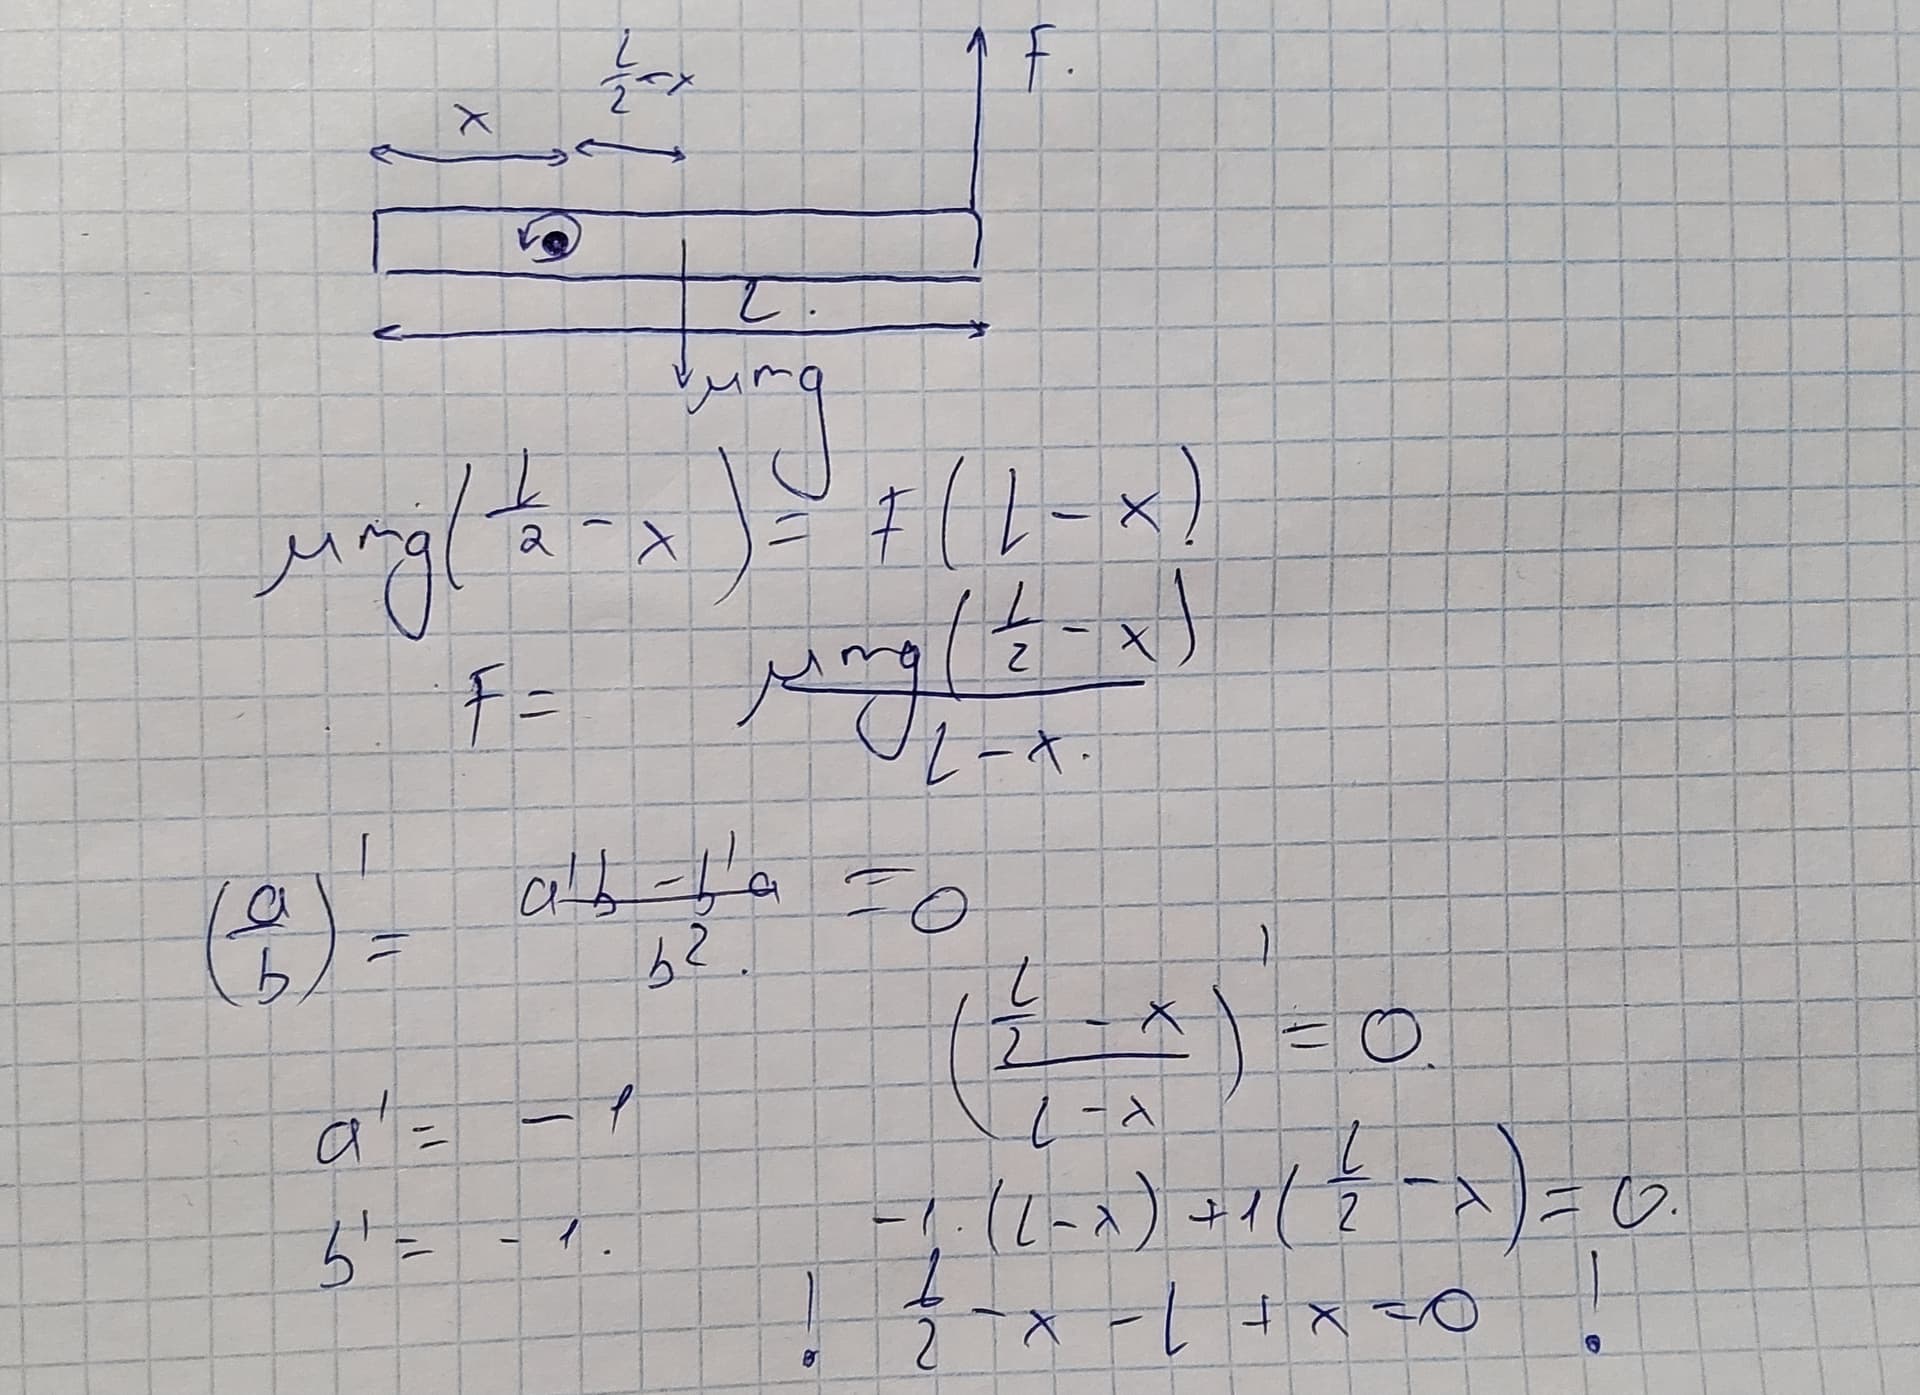 L/2 - x
F.
x
L.
μmg
μmg(L/2 - x) = F(L - x)
F = μmg(L/2 - x)/(L - x).
(a/b)' = (a'b - b'a)/b². = 0
((L/2 - x)/(L - x))' = 0.
a' = -1
b' = -1.
-1·(L - x) + 1(L/2 - x) = 0.
! L/2 - x - L + x = 0 !